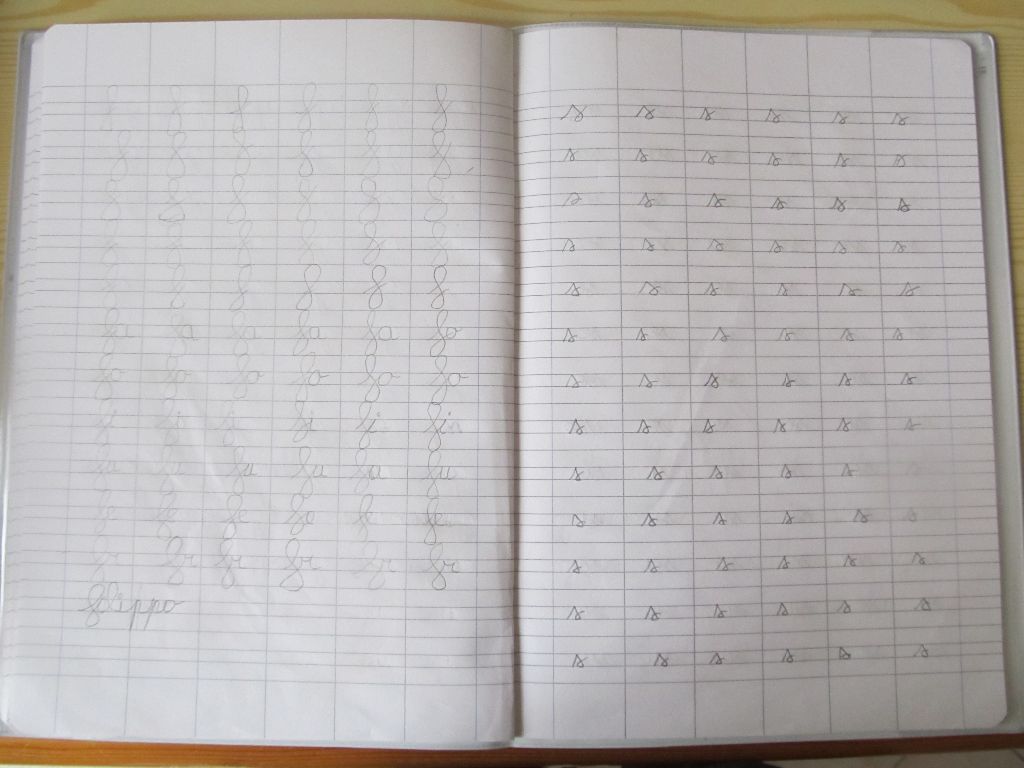 f f f f f f
f f f f f f
f f f f f f
f f f f f f
f f f f f f
fa fa fa fa fa fa
fo fo fo fo fo fo
fi fi fi fi fi fi
fu fu fu fu fu fu
fe fe fe fe fe fe
fr fr fr fr fr fr
filippo
s s s s s s
s s s s s s
s s s s s s
s s s s s s
s s s s s s
s s s s s s
s s s s s s
s s s s s s
s s s s s
s s s s s s
s s s s s s
s s s s s s
s s s s s s